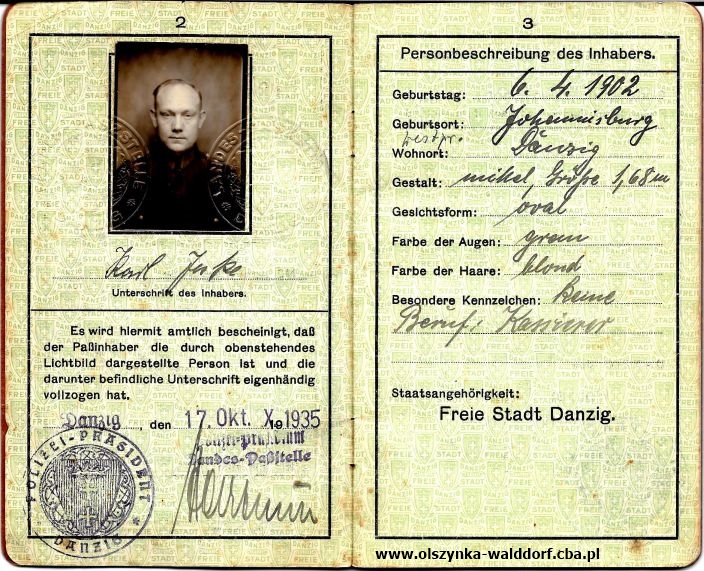 2
Karl
Unterschrift des Inhabers.
Es wird hiermit amtlich bescheinigt, daß
der Paßinhaber die durch obenstehendes
Lichtbild dargestellte Person ist und die
darunter befindliche Unterschrift eigenhändig
vollzogen hat.
Danzig, den 17. Okt. X. 1935
Landes-Paßstelle
POLIZEI-PRÄSIDENT
* DANZIG *
3
Personbeschreibung des Inhabers.
Geburtstag: 6. 4. 1902
Geburtsort: Johannisburg
Wohnort: Danzig
Gestalt: mittel, Größe 1,68 m
Gesichtsform: oval
Farbe der Augen: grau
Farbe der Haare: blond
Besondere Kennzeichen: Keine
Beruf: Kassierer
Staatsangehörigkeit:
Freie Stadt Danzig.
www.olszynka-walddorf.cba.pl